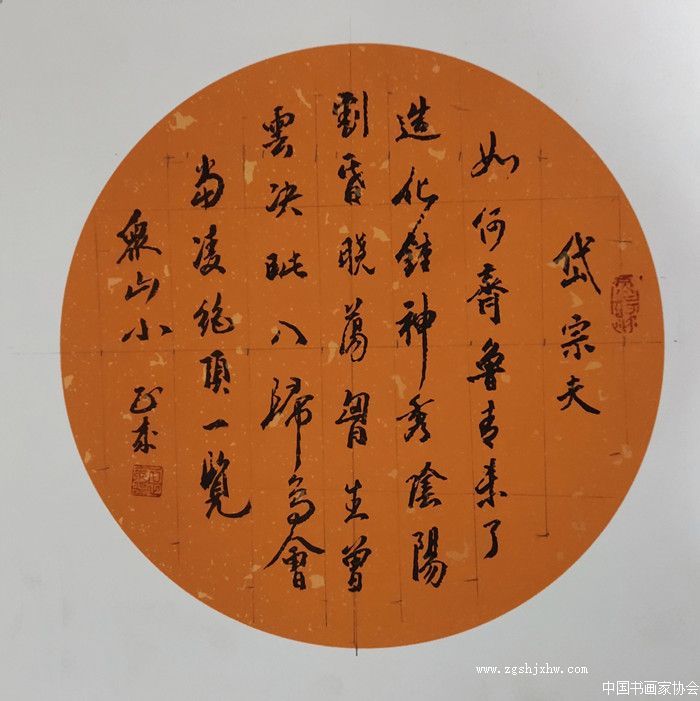 岱宗夫
如何齊魯青未了
造化鍾神秀陰陽
割昏曉蕩胷生曾
雲决眦入歸鳥會
當凌絕頂一覽
衆山小
www.zgshjxhw.com
中国书画家协会